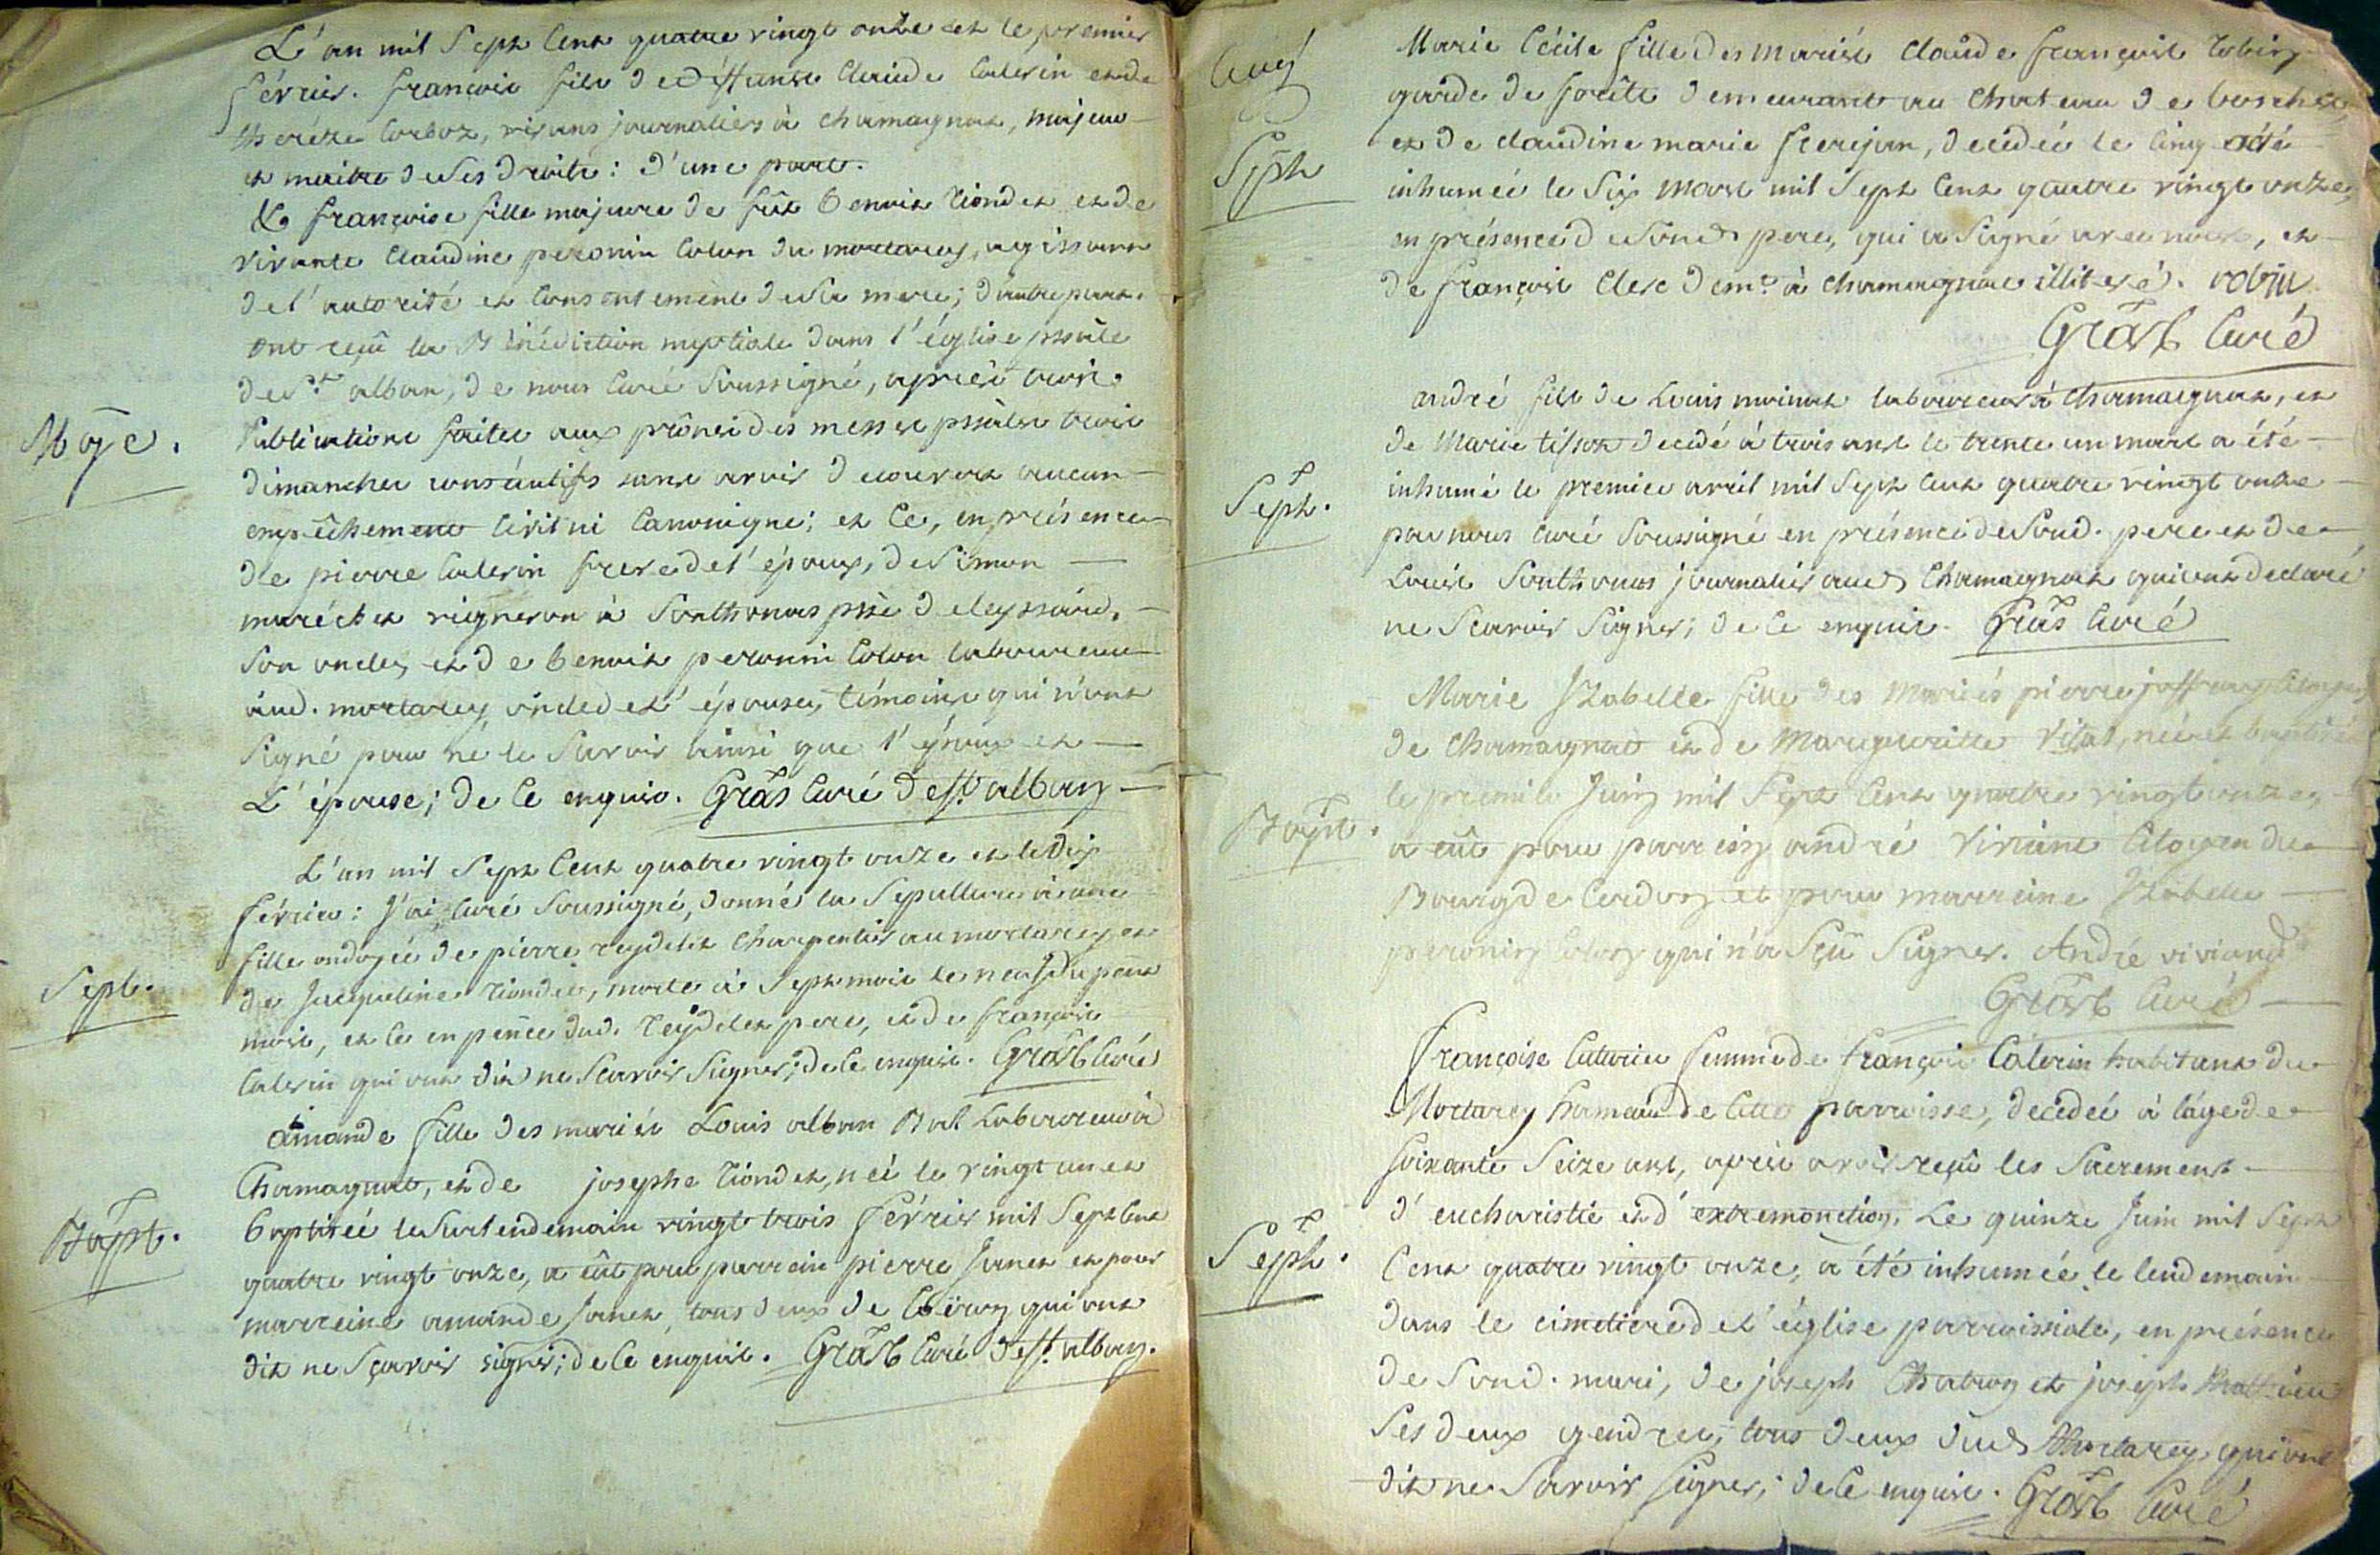 L'an mil Sept Cent quatre vingt onze et le premier
février. françois fils de déffunst Claude Calerin et de
theréze Corboz, vivans journaliers à chamagnat, majeur
et maitre de Ses droits: d'une part.
& françoise fille majeure de feût benoit riondet et de
vivante Claudine peronin Colon du mortarey, agissant
de l'autorité et Consentement de Sa mere; d'autre part.
ont reçû la Bénédiction nuptiale dans l'église pssâle
de St alban, de nous Curé Soussigné, après trois
Publications faites aux prônes des messes pssâles trois
dimanches consécutifs sans avoir decouvert aucun
empêchement Civil ni Canonique; et Ce, en présence
de pierre Calerin frere de l'époux, de Simon
maréchet vigneron à Southonas psse de leyssard,
Son oncle, et de benoit peronin Colon laboureur
aud. mortarey oncle de l'épouse, témoins qui n'ont
Signé pour ne le Savoir ainsi que l'époux et
L'épouse; de Ce enquis. Gras Curé de St alban
Mage.
L'an mil Sept Cent quatre vingt onze et le dix
février: J'ai, Curé Soussigné, donné la Sepulture à une
fille ondoyée de pierre reydelet Charpentier au mortarey et
de Jacqueline riondet, morte à Sept mois le neuf du pñt
mois, et Ce en pñce dud. reydelet pere, et de françois
Calerin qui ont dit ne Scavoir Signer; de Ce enquis. Gras Curé
Sept.
amande fille des mariés Louis alban Bal Laboureur à
Chamagnat, et de josephe riondet, née le vingt un et
baptisée le Surlendemain vingt trois février mil Sept Cent
quatre vingt onze, a eût pour parrein pierre Janet et pour
marreine amande Janet, tous deux de qui ont
dit ne Sçavoir signer; de Ce enquis. Gras Curé de St alban.
Bapt.
Marie Cécile fille des mariés Claude françois robin
garde de forêts demeurant au Chateau de
et de Claudine marie decidée le Cinq a été
inhumée le Six mars mil Sept Cent quatre vingt onze,
en présence de Sond pere, qui a Signé avec nous, et
de françois Clerc demt à chamagnat illiteré. robin
Gras Curé
Sept
andré fils de Louis moinat laboureur à Chamagnat, et
de Marie tisson decidé à trois ans le trente un mars a été
inhumé le premier avril mil Sept Cent quatre vingt onze
par nous Curé Soussigné en présence de Sond. pere et de
Louis Southonas journalier aud Chamagnat qui ont declaré
ne Scavoir Signer; de Ce enquis. Gras Curé
Sept.
Marie Izabelle fille des Mariés pierre joffray
de Chamagnat et de Marguerite Vital, née et baptisée
le premier Juin mil Sept Cent quatre vingt onze,
a eût pour parrein andré viviand Citoyen du
Bourg de Cerdon et pour marreine Izabelle
peronin Colon qui n'a Sçû Signer. André viviand
Gras Curé
Bapt.
Françoise Cuturier femme de françois Calerin habitant du
Mortarey hameau de Cette parroisse, decideé à l'âge de
Soixante Seize ans, après avoir reçû les Sacrements
d'eucharistie et d'extremonction, Le quinze Juin mil Sept
Cent quatre vingt onze, a été inhumée le lendemain
dans le cimetiere de l'église parroissiale, en présence
de Sond. mari, de joseph et joseph
Ses deux gendres, tous deux dud Mortarey qui ont
dit ne Savoir Signer; de Ce enquis. Gras Curé
Sept.